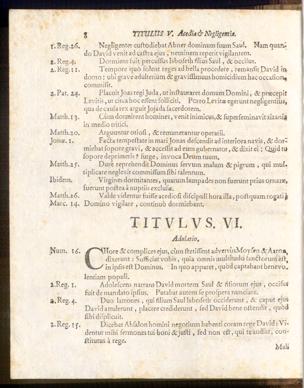 8 TITULUS V. Acedia & Negligentia.
1. Reg. 26. Negligenter custodiebat Abner dominum suum Saul. Nam quando David venit ad castra ejus, neminem reperit vigilantem.
2. Reg. 4. Dormiens fuit percussus Isboseth filius Saul, & occisus.
2. Reg. 11. Tempore quo solent reges ad bella procedere, remansit David in
domo: ubi grave adulterium & gravissimum homicidium hac occasione
commisit.
2. Par. 24. Placuit Joas regi Juda, ut instauraret domum Domini, & præcepit
Levitis, ut circa hoc essent solliciti. Porro Levitæ egerunt negligentius,
qua de causa rex arguit Jojada sacerdotem.
Matth. 13. Cum dormirent homines, venit inimicus, & superseminavit zizania
in medio tritici.
Matth. 20. Arguuntur otiosi, & remunerantur operarii.
Jonæ. 1. Facta tempestate in mari Jonas descendit ad interiora navis, & dormiebat
sopore gravi, & accessit ad eum gubernator, & dixit ei: Quid tu
sopore deprimeris? surge, invoca Deum tuum.
Matth. 25. Dure reprehendit Dominus servum malum & pigrum, qui multiplicare neglexit commissum sibi talentum.
Ibidem. Virgines dormitantes, quarum lampades non fuerunt prius ornatæ,
fuerunt postea à nuptiis exclusæ.
Matth. 26. Valde videntur fuisse acediosi discipuli hora illa, postquam rogati à
Marc. 14. Domino vigilare, continuo dormiebant.
TITULUS. VI.
Adulatio.
Num. 16. CHore & complices ejus, cum stetissent adversus Moysen & Aaron,
dixerunt: Sufficiat vobis, quia omnis multitudo sanctorum est,
in ipsis est Dominus. In quo apparet, quod captabant benevolentiam populi.
2. Reg. 1. Adolescens narrans David mortem Saul & filiorum ejus, occisus
fuit de mandato ipsius. Putabat autem se prospera nunciare.
2. Reg. 4. Duo latrones, qui filium Saul Isboseth occiderunt, & caput ejus
David attulerunt, placere crediderunt, sed David bene ostendit, quod
sibi displicuit.
2. Reg. 15. Dicebat Absalon homini negotium habenti coram rege David: Videntur mihi sermones tui boni & justi, sed non est, qui te audiat, constitutus à rege.
Muli